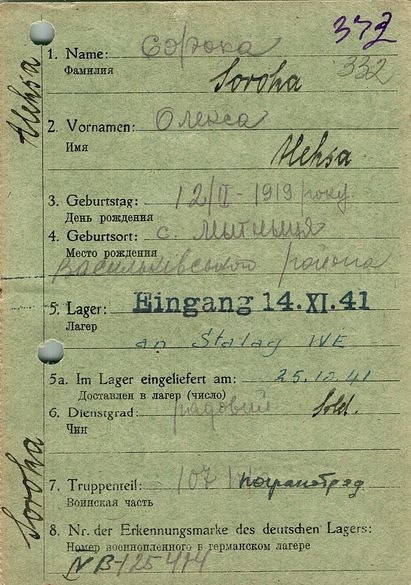 372
1. Name: Сорока
332
Фамилия
Soroka
2. Vornamen: Олекса
Имя
Aleksa
3. Geburtstag: 12/II-1919 року
День рождения
4. Geburtsort: с. Мытныця
Место рождения
Васильківського района
5. Lager: Eingang 14. XI. 41
Лагер
an Stalag IVE
5a. Im Lager eingeliefert am: 25.10.41
Доставлен в лагер (число)
6. Dienstgrad: рядовий Sold.
Чин
7. Truppenteil: 107 погранотряд
Воинская часть
8. Nr. der Erkennungsmarke des deutschen Lagers:
Номер военнопленного в германском лагере
Aleksa
Soroka